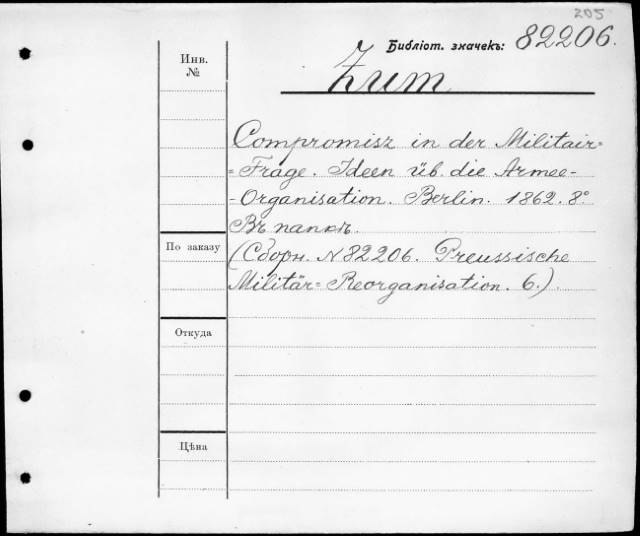 205
Библіот. значекъ: 82206.
Инв. №
Zum
Compromisz in der Militair=
=Frage. Ideen üb. die Armee-
-Organisation. Berlin. 1862. 8°
Въ папкѣ.
По заказу
(Сборн. N 82206. Preussische
Militär=Reorganisation. 6.)
Откуда
Цѣна